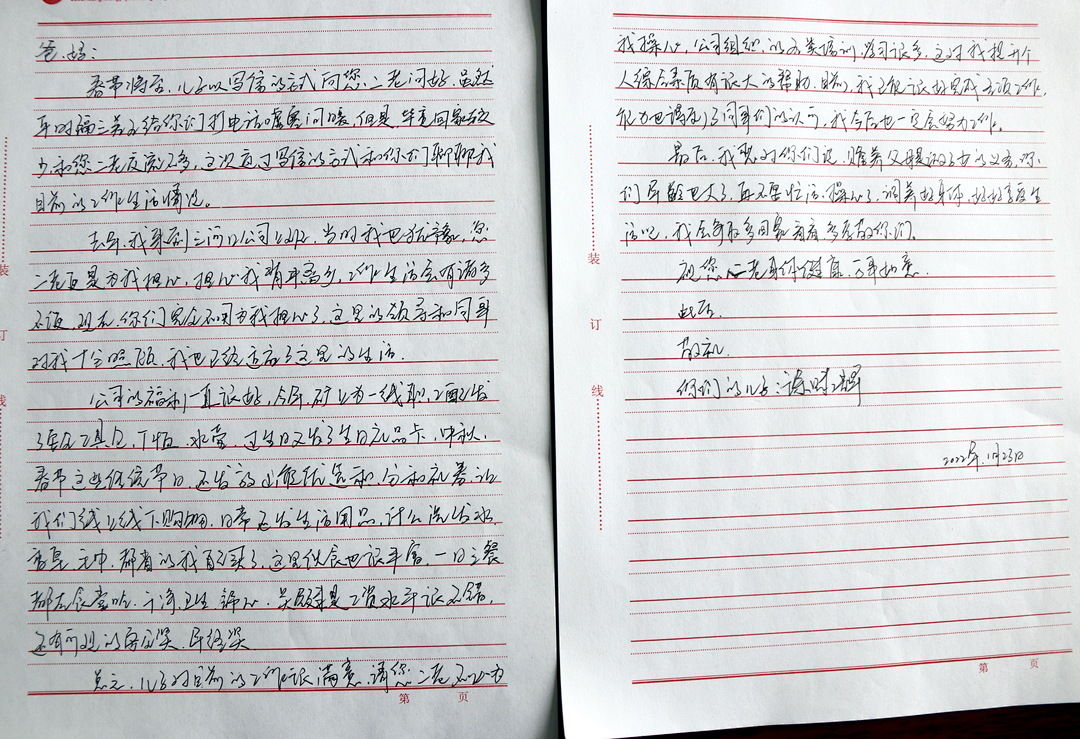 爸、妈：
春节将至，儿子以写信的方式向您二老问好，虽然
平时隔三差五给你们打电话嘘寒问暖，但是，毕竟回家较
少和您二老交流不多，这次通过写信的方式和你们聊聊我
目前的工作生活情况。
去年，我来到三河口公司上班，当时我也犹豫，您
二老更是为我担心，担心我背井离乡，工作生活会有诸多
不便，现在，你们完全不用为我担心了，这里的领导和同事
对我十分照顾，我也已经适应了这里的生活。
公司的福利一直很好，今年，矿上为一线职工配发
了工具包、T恤、水壶，过生日又发了生日礼品卡，中秋、
春节这些传统节日，还发放山能优选和礼券，让
我们线上线下购物，日常还发生活用品，什么洗发水、
香皂、毛巾，都省的我自己买了，这里伙食也很丰富，一日三餐
都在食堂吃，干净卫生舒心，关键是工资水平很不错，
还有可观的安全奖、年终奖。
总之，儿子对目前的工作很满意，请您二老不必为
第 页
我操心，公司组织的各类培训学习很多，这对我提升个
人综合素质有很大的帮助，目前，我已能很好完成各项工作，
能力也得到了同事们的认可，我今后也一定会努力工作。
最后，我想对你们说，赡养父母是子女的义务，你
们年龄也大了，再不要忙活、操心了，调养好身体，好好享受生
活吧，我会争取多回家看看多孝敬你们。
祝您二老身体健康，万事如意。
此致
敬礼
你们的儿子：
2022年1月23日
第 页
装
订
线
装
订
线